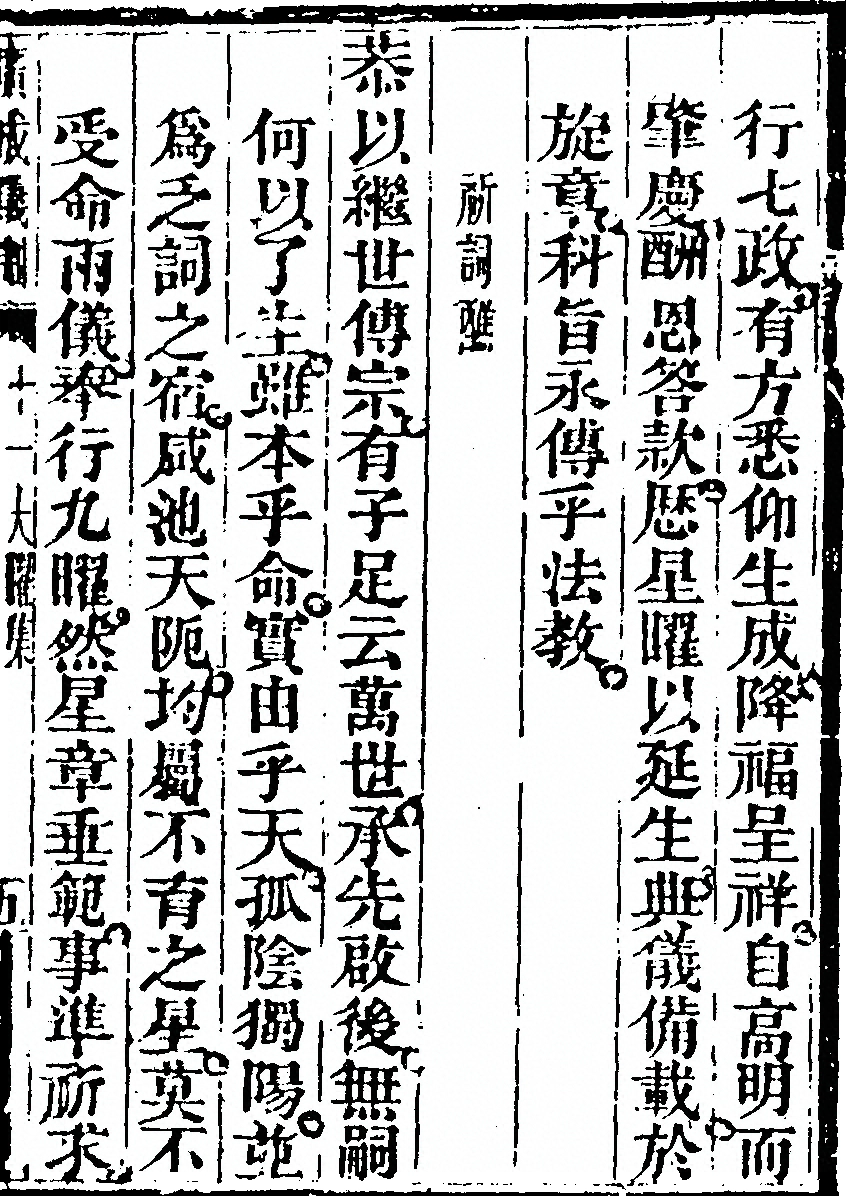 行七政有方悉仰生成降福呈祥自高明而
肇慶酬恩答款歷星曜以延生典儀備載於
旋章科旨永傳乎法教
祈詞醮
恭以繼世傳宗有子足云萬世承先啟後無嗣
何以了主雖本乎命實由乎天孤陰獨陽並
爲乏詞之宿咸池天阨均屬不育之星莫不
受命兩儀奉行九曜然星章垂範事準祈求
十一大曜集